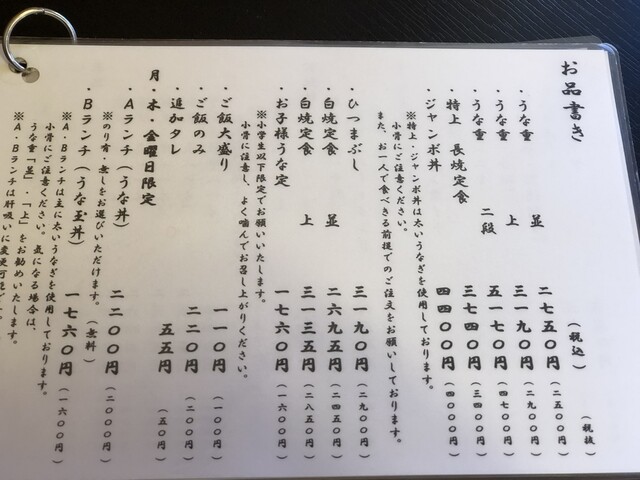 お品書き
（税込）（税抜）
・うな重 並 二七五〇円（二五〇〇円）
・うな重 上 三一九〇円（二九〇〇円）
・うな重 二段 五一七〇円（四七〇〇円）
・特上 長焼定食 三七四〇円（三四〇〇円）
・ジャンボ丼 四四〇〇円（四〇〇〇円）
※特上・ジャンボ丼は太いうなぎを使用しております。
小骨にご注意ください。
また、お一人で食べきる前提でのご注文をお願いしております。
・ひつまぶし 三一九〇円（二九〇〇円）
・白焼定食 並 二六九五円（二四五〇円）
・白焼定食 上 三一三五円（二八五〇円）
・お子様うな定 一七六〇円（一六〇〇円）
※小学生以下限定でお願いいたします。
小骨に注意し、よく噛んでお召し上がりください。
・ご飯大盛り 一一〇円（一〇〇円）
・ご飯のみ 二二〇円（二〇〇円）
・追加タレ 五五円（五〇円）
月・木・金曜日限定
・Aランチ（うな丼） 二二〇〇円（二〇〇〇円）
※のり有・無しをお選びいただけます。（無料）
・Bランチ（うな玉丼） 一七六〇円（一六〇〇円）
※A・Bランチは主に太いうなぎを使用しております。
小骨にご注意ください。気になる場合は、
うな重「並」・「上」をお勧めいたします。
※A・Bランチは肝吸いに変更可能です。